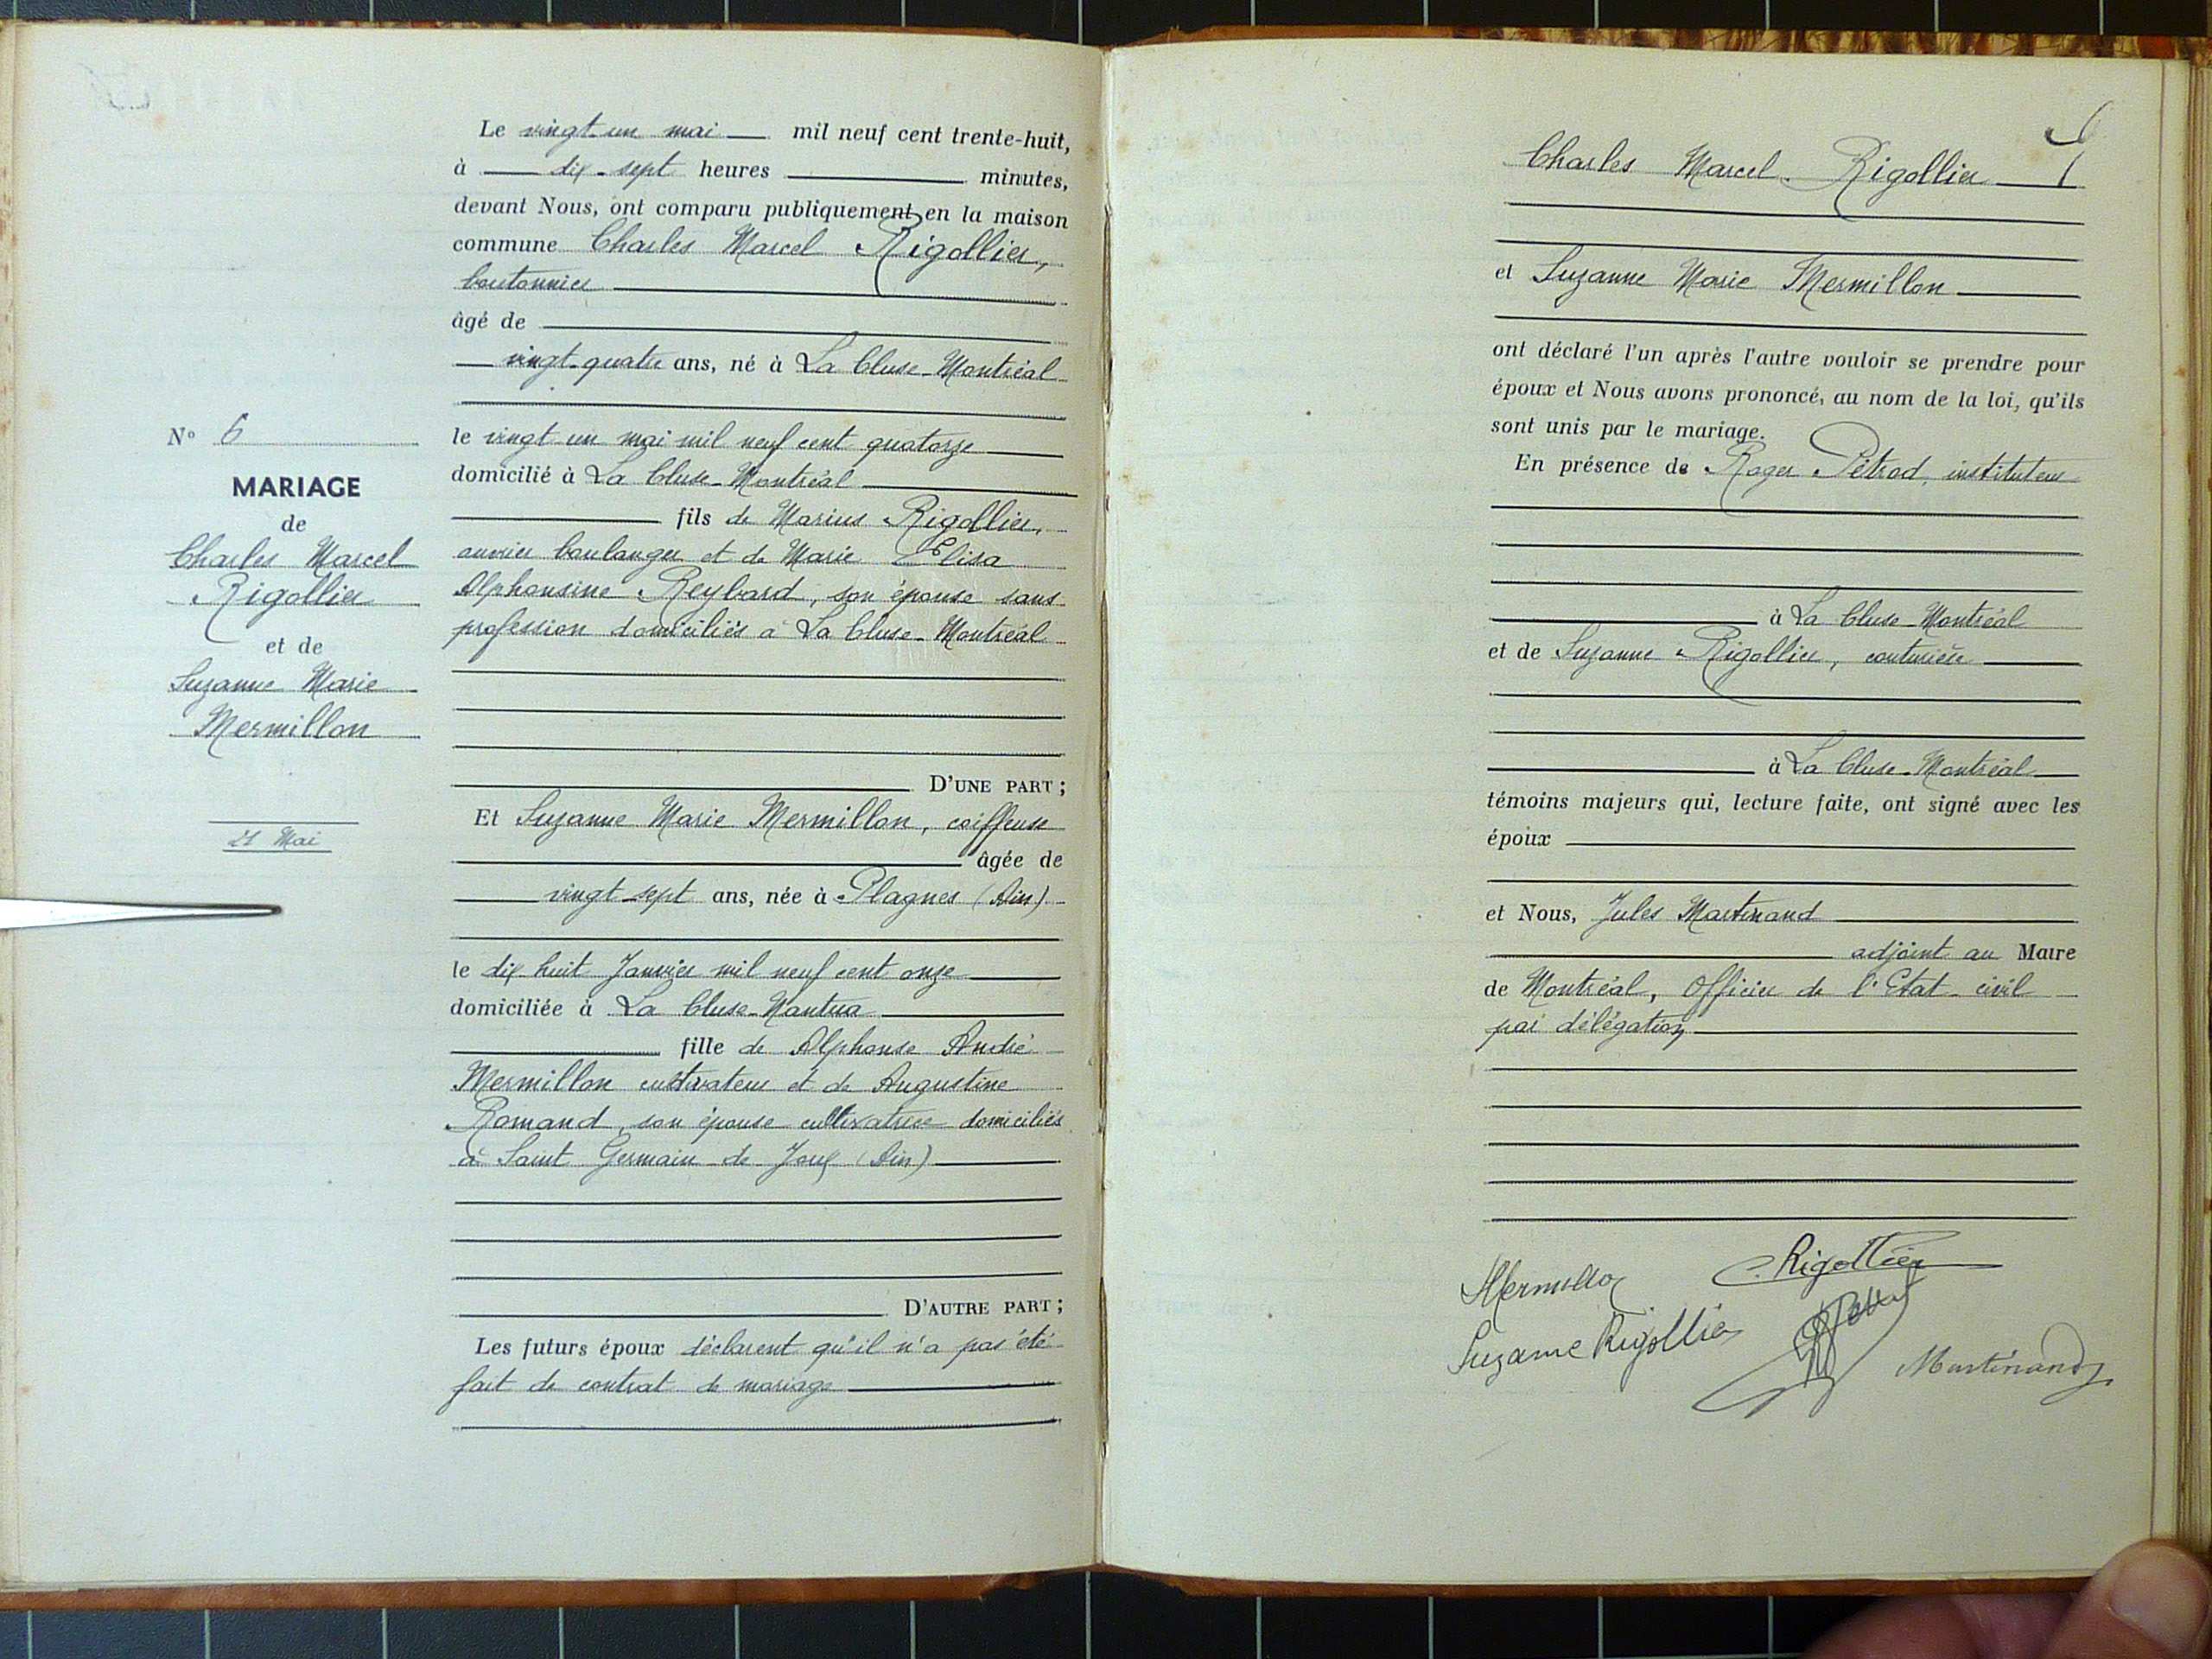 Le vingt-un mai mil neuf cent trente-huit,
à dix-sept heures minutes,
devant Nous, ont comparu publiquement en la maison
commune Charles Marcel Rigollier,
boutonnier
âgé de
vingt-quatre ans, né à La Cluse-Montréal
le vingt un mai mil neuf cent quatorze
domicilié à La Cluse-Montréal
fils de Marius Rigollier,
ouvrier boulanger et de Marie Elisa
Alphonsine Reybard, son épouse sans
profession domiciliés à La Cluse-Montréal
D'UNE PART ;
Et Suzanne Marie Mermillon, coiffeuse
âgée de
vingt-sept ans, née à Plagnes (Ain)
le dix huit Janvier mil neuf cent onze
domiciliée à La Cluse-Nantua
fille de Alphonse André
Mermillon cultivateur et de Augustine
Romand, son épouse cultivatrice domiciliés
à Saint Germain de Joux (Ain)
D'AUTRE PART ;
Les futurs époux déclarent qu'il n'a pas été
fait de contrat de mariage
N° 6
MARIAGE
de
Charles Marcel
Rigollier
et de
Suzanne Marie
Mermillon
21 Mai
6
Charles Marcel Rigollier
et Suzanne Marie Mermillon
ont déclaré l'un après l'autre vouloir se prendre pour
époux et Nous avons prononcé, au nom de la loi, qu'ils
sont unis par le mariage.
En présence de Roger Pétrod, instituteur
à La Cluse-Montréal
et de Suzanne Rigollier, couturière
à La Cluse-Montréal
témoins majeurs qui, lecture faite, ont signé avec les
époux
et Nous, Jules Martinand
adjoint au Maire
de Montréal, Officier de l'Etat-civil
par délégation
SMermillon C. Rigollier
Suzanne Rigollier
Martinand